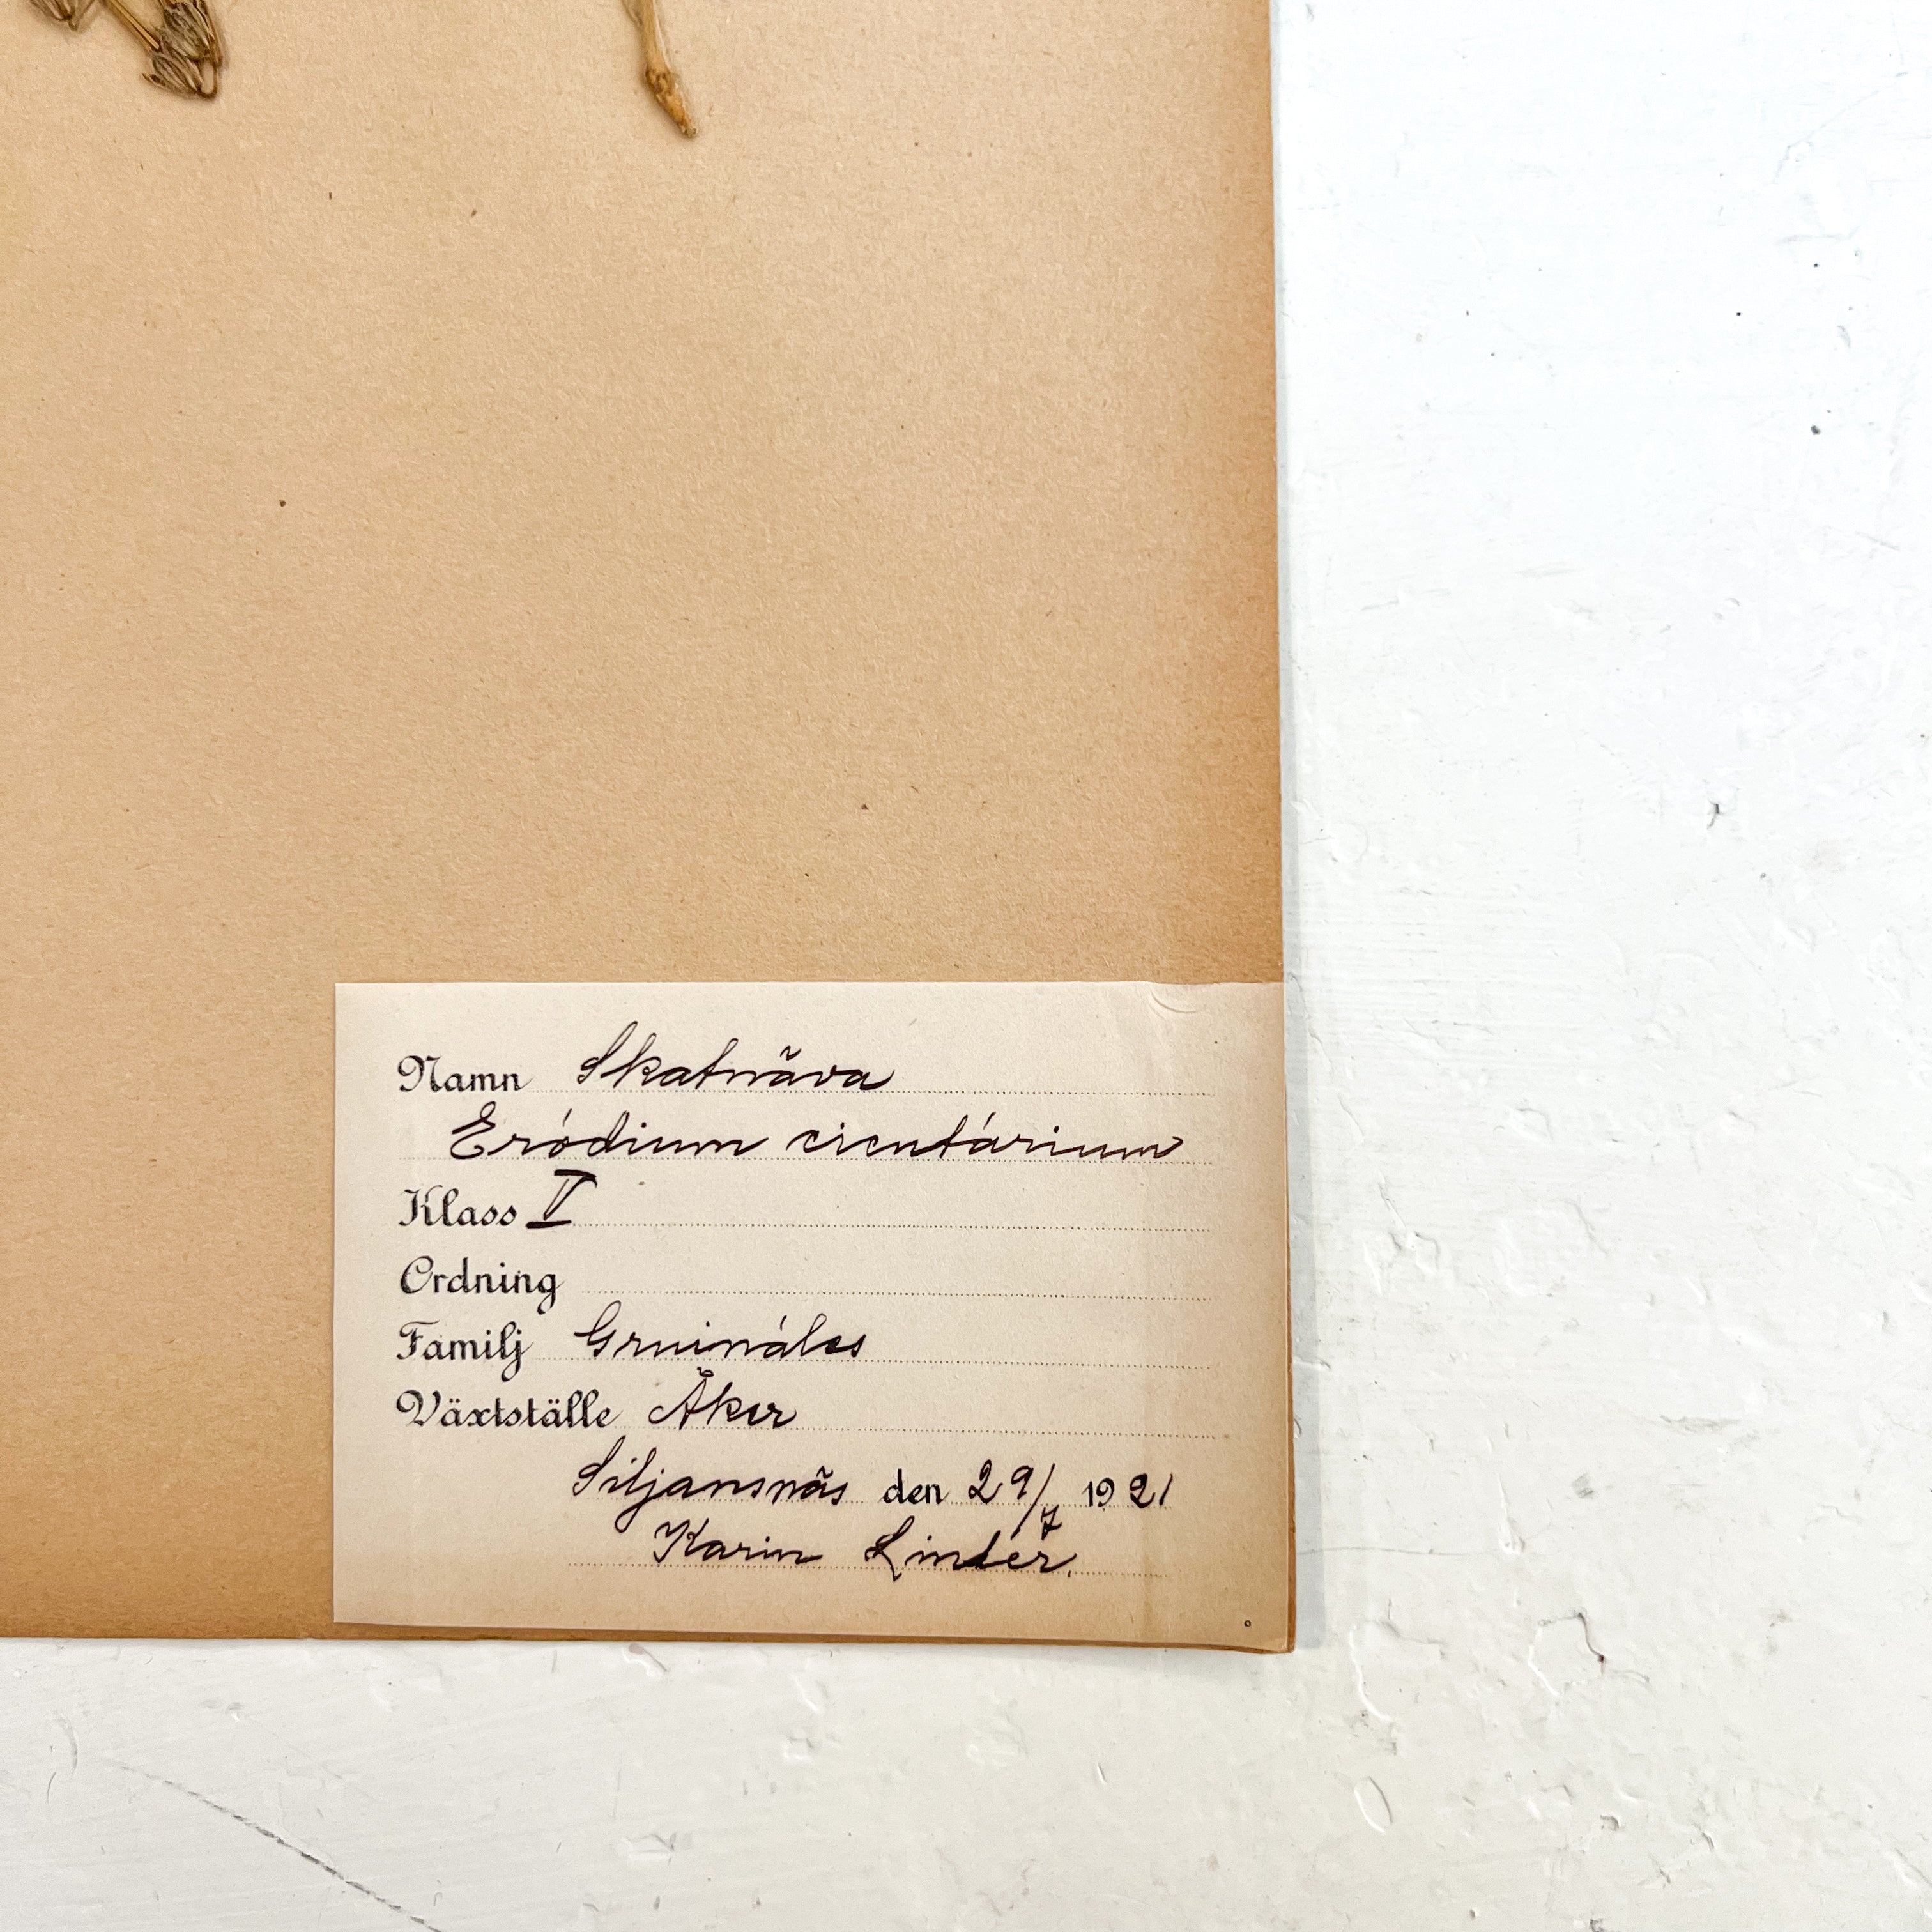 Namn Skatnäva
Eródium cicutárium
Klass V
Ordning
Familj Gruináles
Växtställe Åker
Siljansnäs den 29/7 1921
Karin Linder.